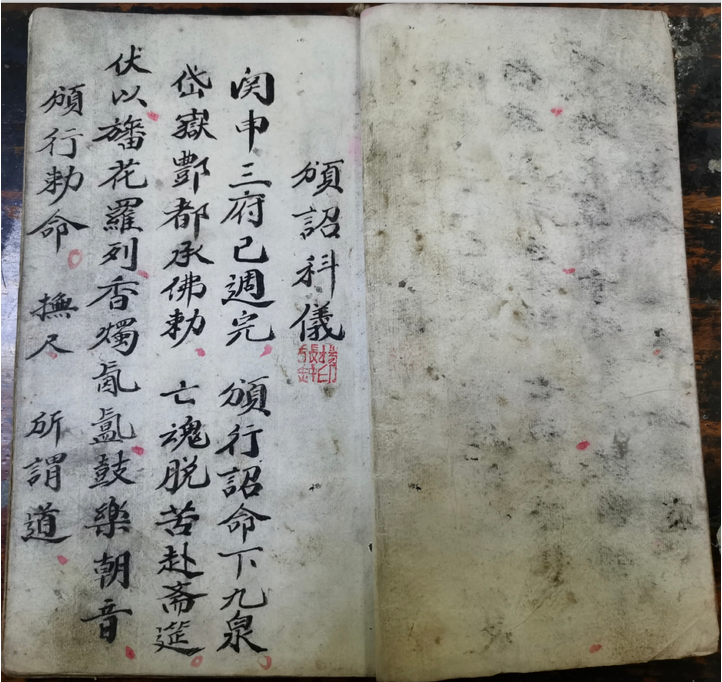 頒詔科儀
関申三府已週完 頒行詔命下九泉
岱嶽酆都承佛勅 亡魂脱苦赴斎筵
伏以旛花羅列香燭氤氳鼓樂朝音
頒行勅命 撫尺 所謂道